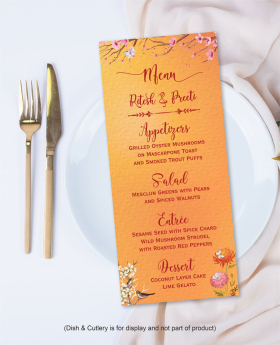 Menu
Ritesh & Preeti
Appetizers
Grilled Oyster Mushrooms
on Mascarpone Toast
and Smoked Trout Puffs
Salad
Mesclun Greens with Pears
and Spiced Walnuts
Entrée
Sesame Seed with Spice Chard
Wild Mushroom Strudel
with Roasted Red Peppers
Dessert
Coconut Layer Cake
Lime Gelato
(Dish & Cutlery is for display and not part of product)